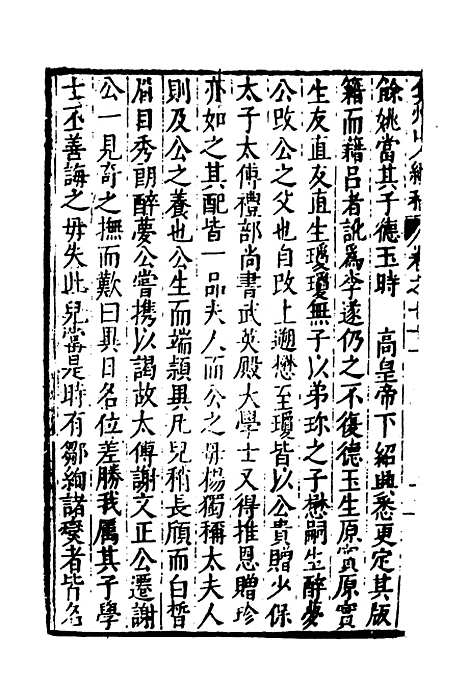 弇州山人續稿 卷之七十一
餘姚當其子德玉時 高皇帝下紹興悉更定其版
籍而籍吕者訛爲李遂仍之不復德玉生原實原實
生友直友直生璦瓊瓊無子以弟珎之子懋嗣生醉夢
公改公之父也自改上遡懋至瓊皆以公貴贈少保
太子太傅禮部尚書武英殿大學士又得推恩贈珍
亦如之其配皆一品夫人而公之毋楊獨稱太夫人
則及公之養也公生而端頴異凡兒稍長頎而白皙
眉目秀朗醉夢公嘗携以謁故太傅謝文正公遷謝
公一見奇之撫而歎曰異日名位差勝我屬其子學
士丕善誨之毋失此兒當是時有鄒絢諸燮者皆名